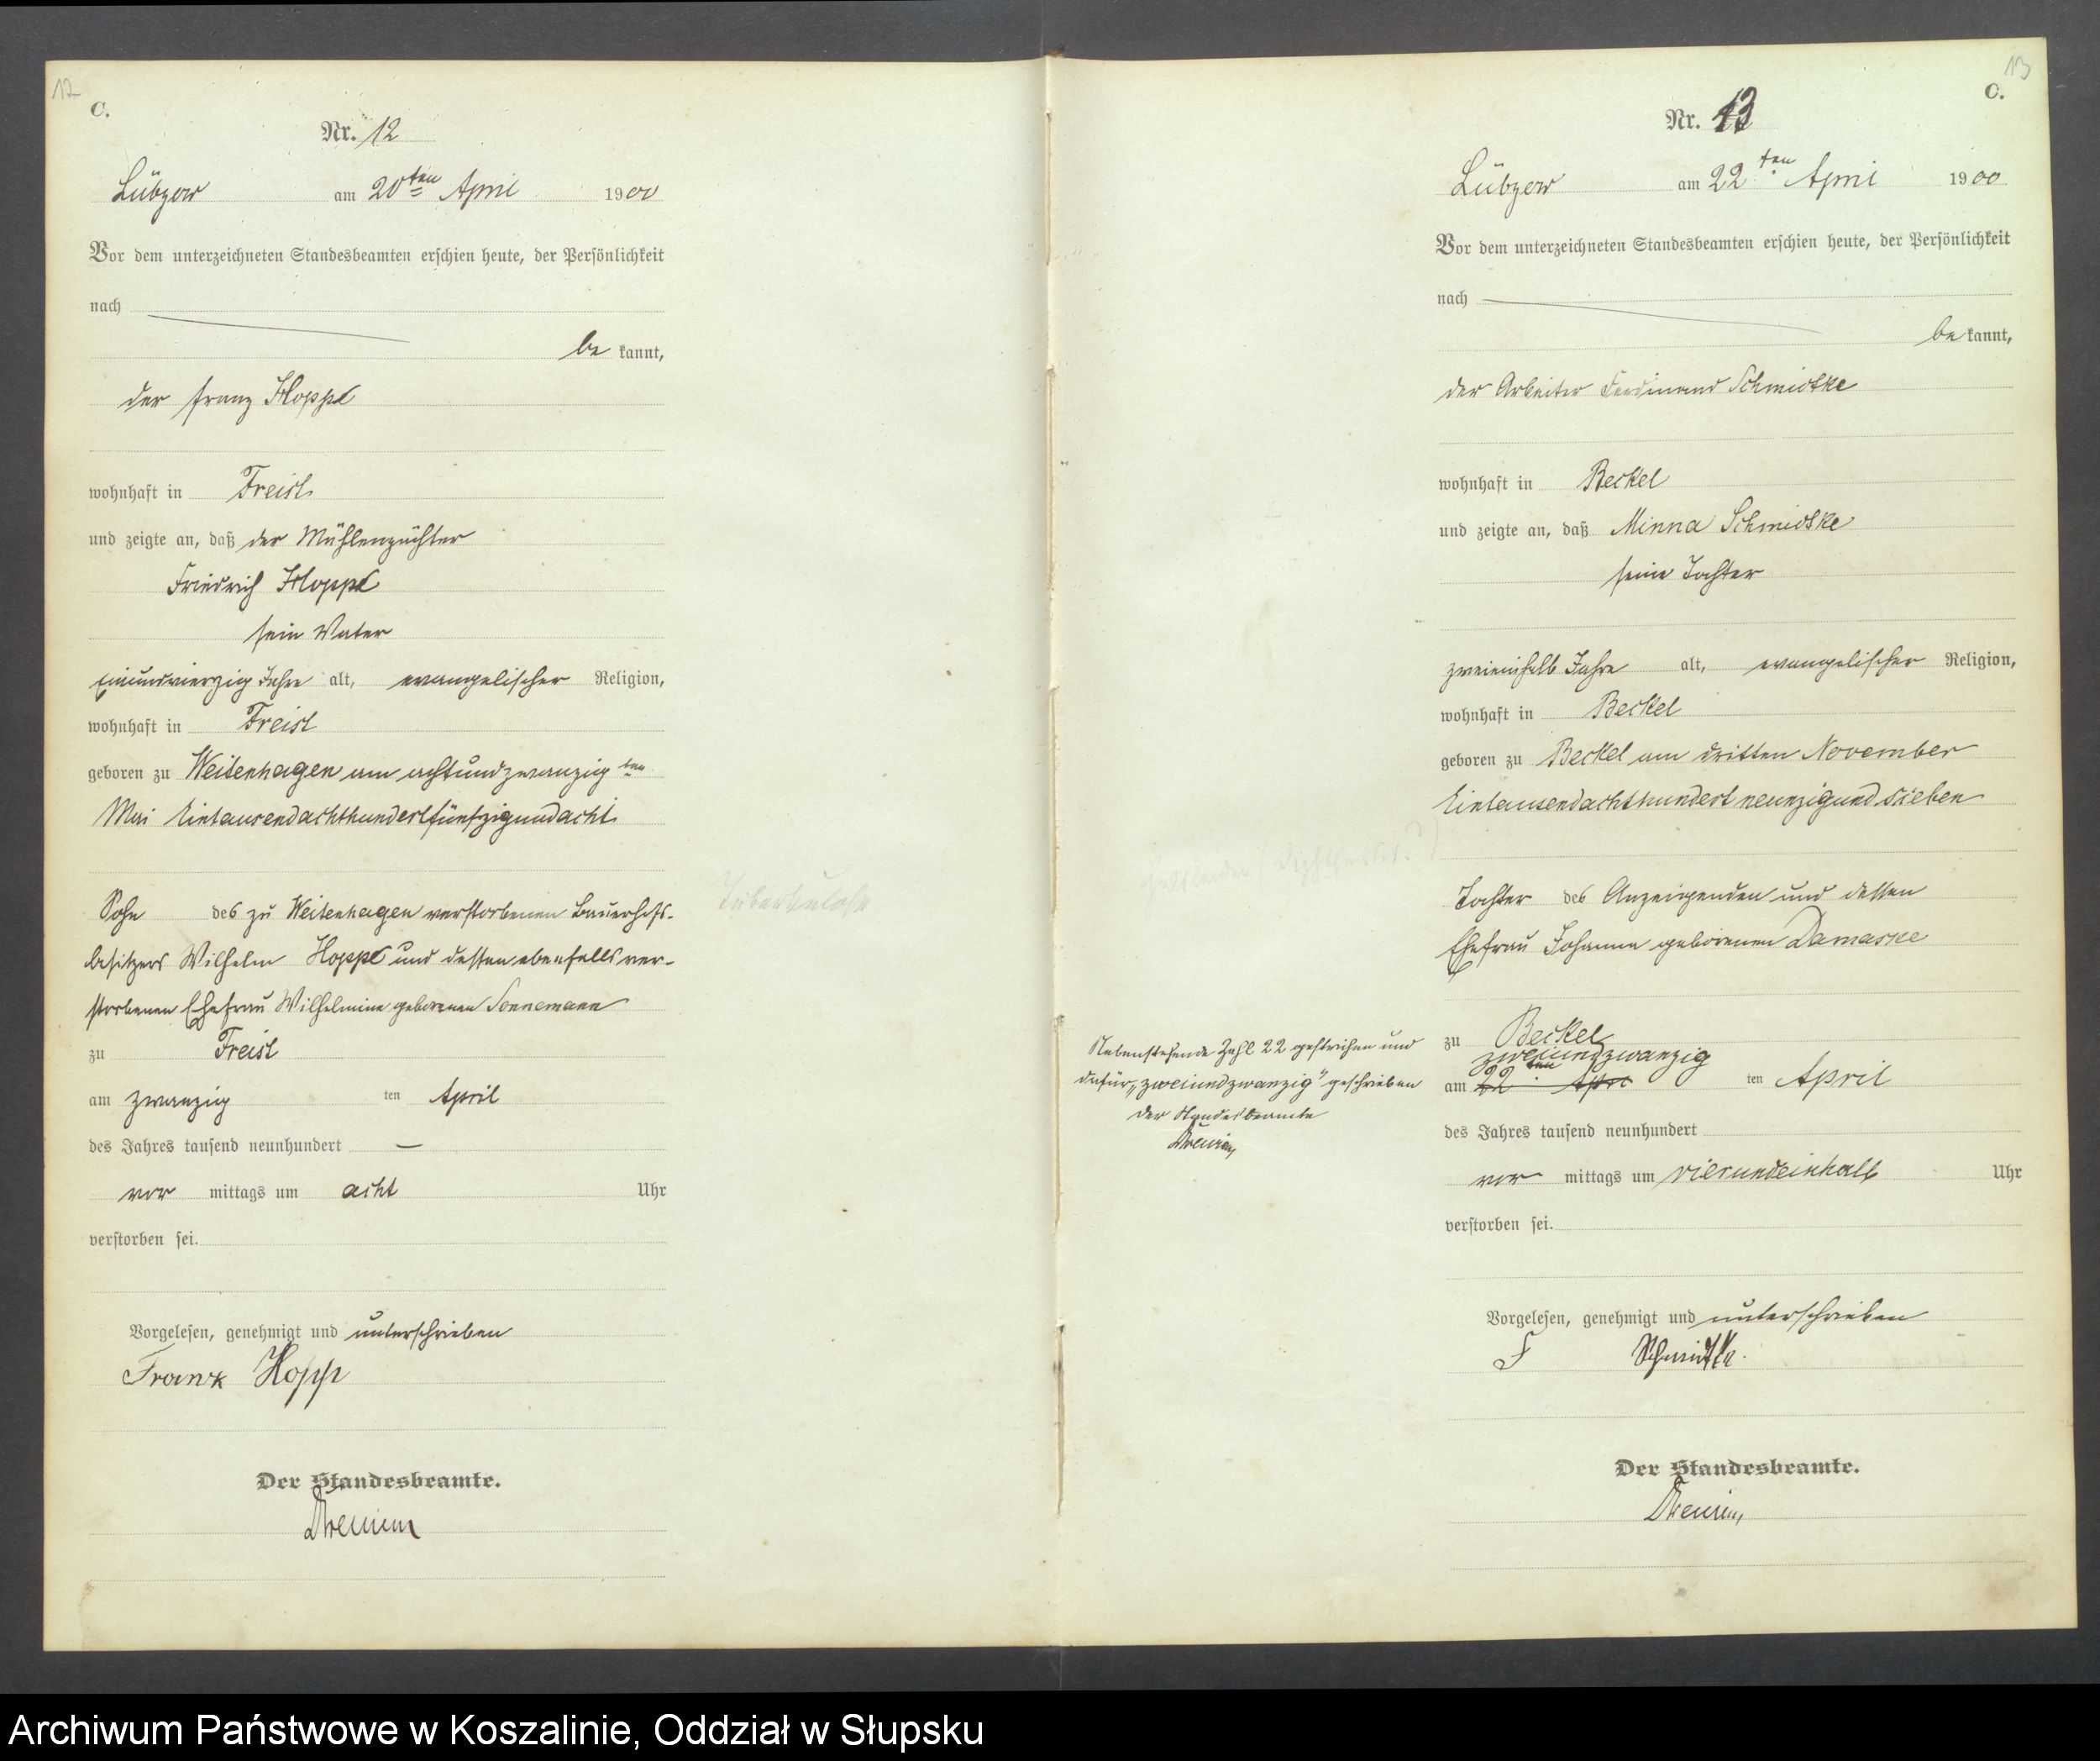 12
C.
Nr. 12
Lübzow am 20ten April 1900
Vor dem unterzeichneten Standesbeamten erschien heute, der Persönlichkeit
nach
be kannt,
der Franz Hoppe
wohnhaft in Freist
und zeigte an, daß der Mühlenpächter
Friedrich Hoppe
sein Vater
einundvierzig Jahre alt, evangelischer Religion,
wohnhaft in Freist
geboren zu Weitenhagen am achtundzwanzig ten
Mai Eintausendachthundertfünfzigundacht
Sohn des zu Weitenhagen verstorbenen Bauerhofs-
besitzers Wilhelm Hoppe und dessen ebenfalls ver-
storbenen Ehefrau Wilhelmine geborenen Sonnemann
zu Freist
am zwanzig ten April
des Jahres tausend neunhundert —
vor mittags um acht Uhr
verstorben sei.
Vorgelesen, genehmigt und unterschrieben
Frank Hopp
Der Standesbeamte.
Tuberkulose
13
C.
Nr. 13
Lübzow am 22ten April 1900
Vor dem unterzeichneten Standesbeamten erschien heute, der Persönlichkeit
nach
be kannt,
der Arbeiter Ferdinand Schmidtke
wohnhaft in Beckel
und zeigte an, daß Minna Schmidtke
seine Tochter
zweieinhalb Jahre alt, evangelischer Religion,
wohnhaft in Beckel
geboren zu Beckel am dritten November
Eintausendachthundert neunzigund sieben
Tochter des Anzeigenden und dessen
Ehefrau Johanna geborenen Damaske
zu Beckel
zweiundzwanzig
am 22ten April ten April
des Jahres tausend neunhundert
vor mittags um vierundeinhalb Uhr
verstorben sei.
Vorgelesen, genehmigt und unterschrieben
F Schmidtke.
Der Standesbeamte.
Nebenstehende Zahl 22 gestrichen und
dafür „zweiundzwanzig" geschrieben
Der Standesbeamte
Archiwum Państwowe w Koszalinie, Oddział w Słupsku